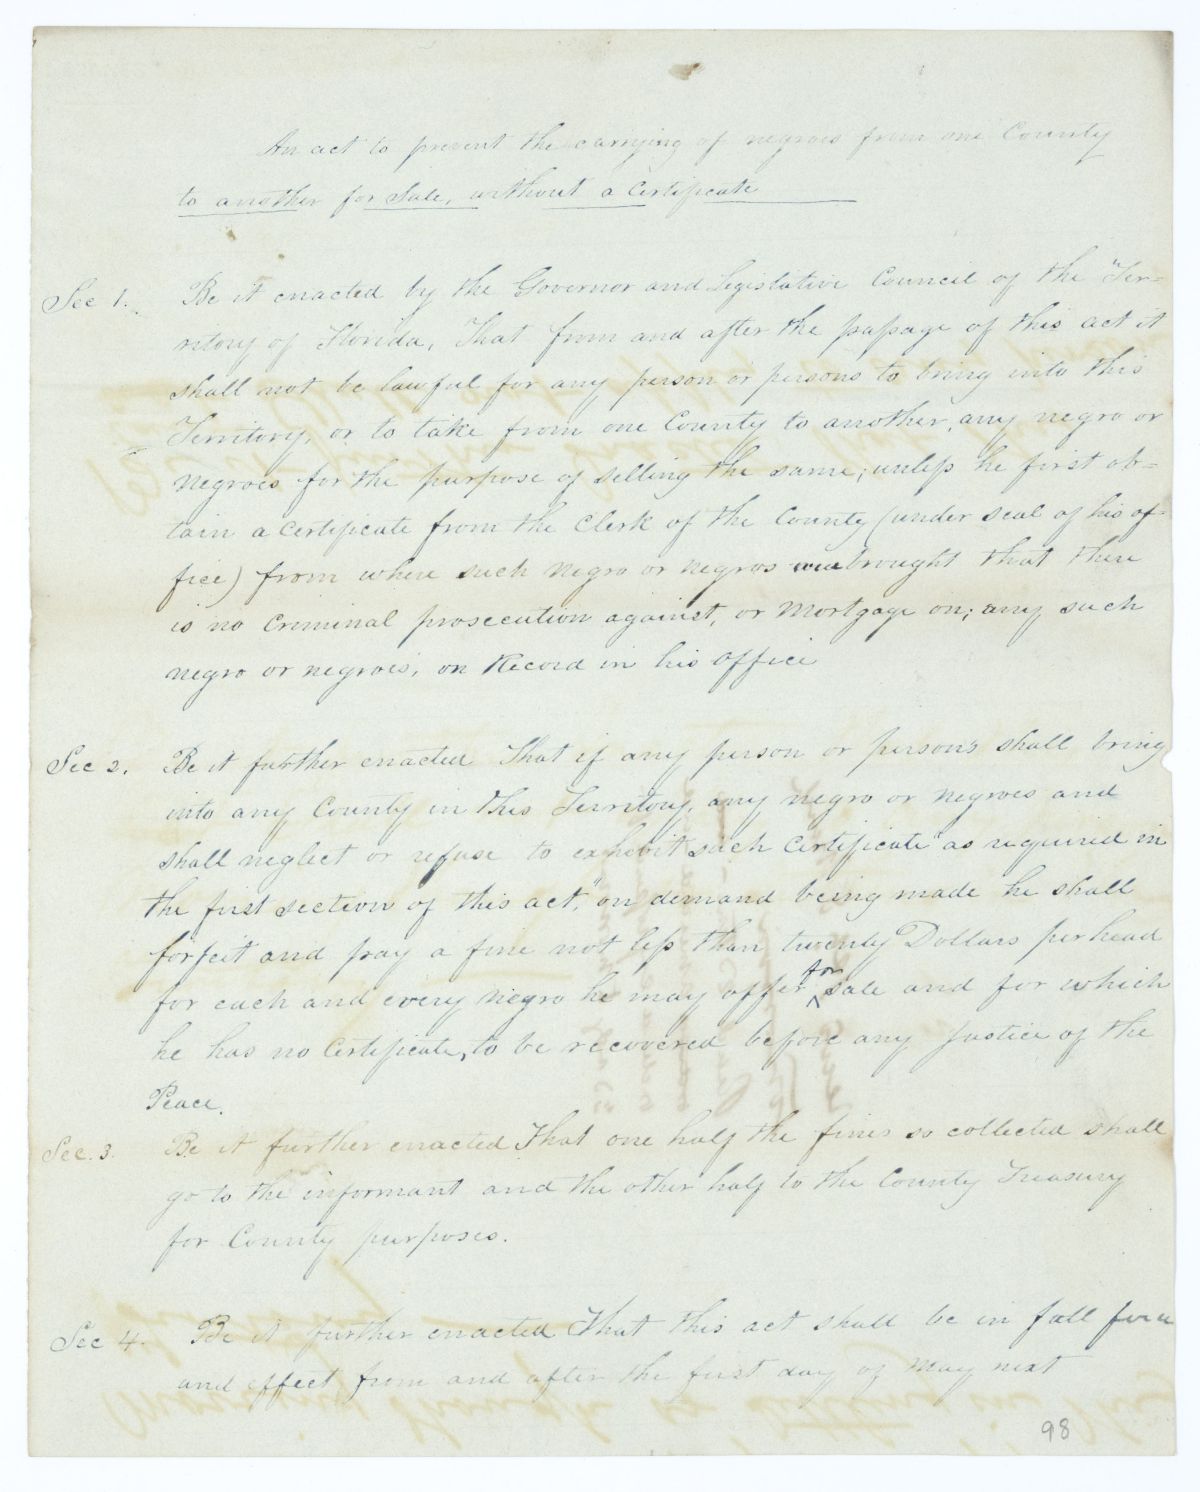 An act to prevent the carrying of negroes from one County
to another for Sale, without a Certificate
Sec 1. Be it enacted by the Governor and Legislative Council of the Ter-
ritory of Florida, That from and after the passage of this act it
shall not be lawful for any person or persons to bring into this
Territory, or to take from one County to another, any negro or
negroes for the purpose of selling the same; unless he first ob-
tain a certificate from the Clerk of the County (under seal of his of-
fice) from where such negro or negros were brought that there
is no criminal prosecution against, or Mortgage on; any such
negro or negroes, on Record in his office
Sec 2. Be it further enacted That if any person or persons shall bring
into any County in this Territory, any negro or negroes and
shall neglect or refuse to exhibit such Certificate "as required in
the first section of this act," on demand being made he shall
forfeit and pay a fine not less than twenty Dollars per head
for each and every negro he may offer for sale and for which
he has no Certificate, to be recovered before any Justice of the
Peace.
Sec. 3. Be it further enacted That one half the fines so collected shall
go to the informant and the other half to the County Treasury
for County purposes.
Sec 4. Be it further enacted That this act shall be in full force
and effect from and after the first day of May next
98